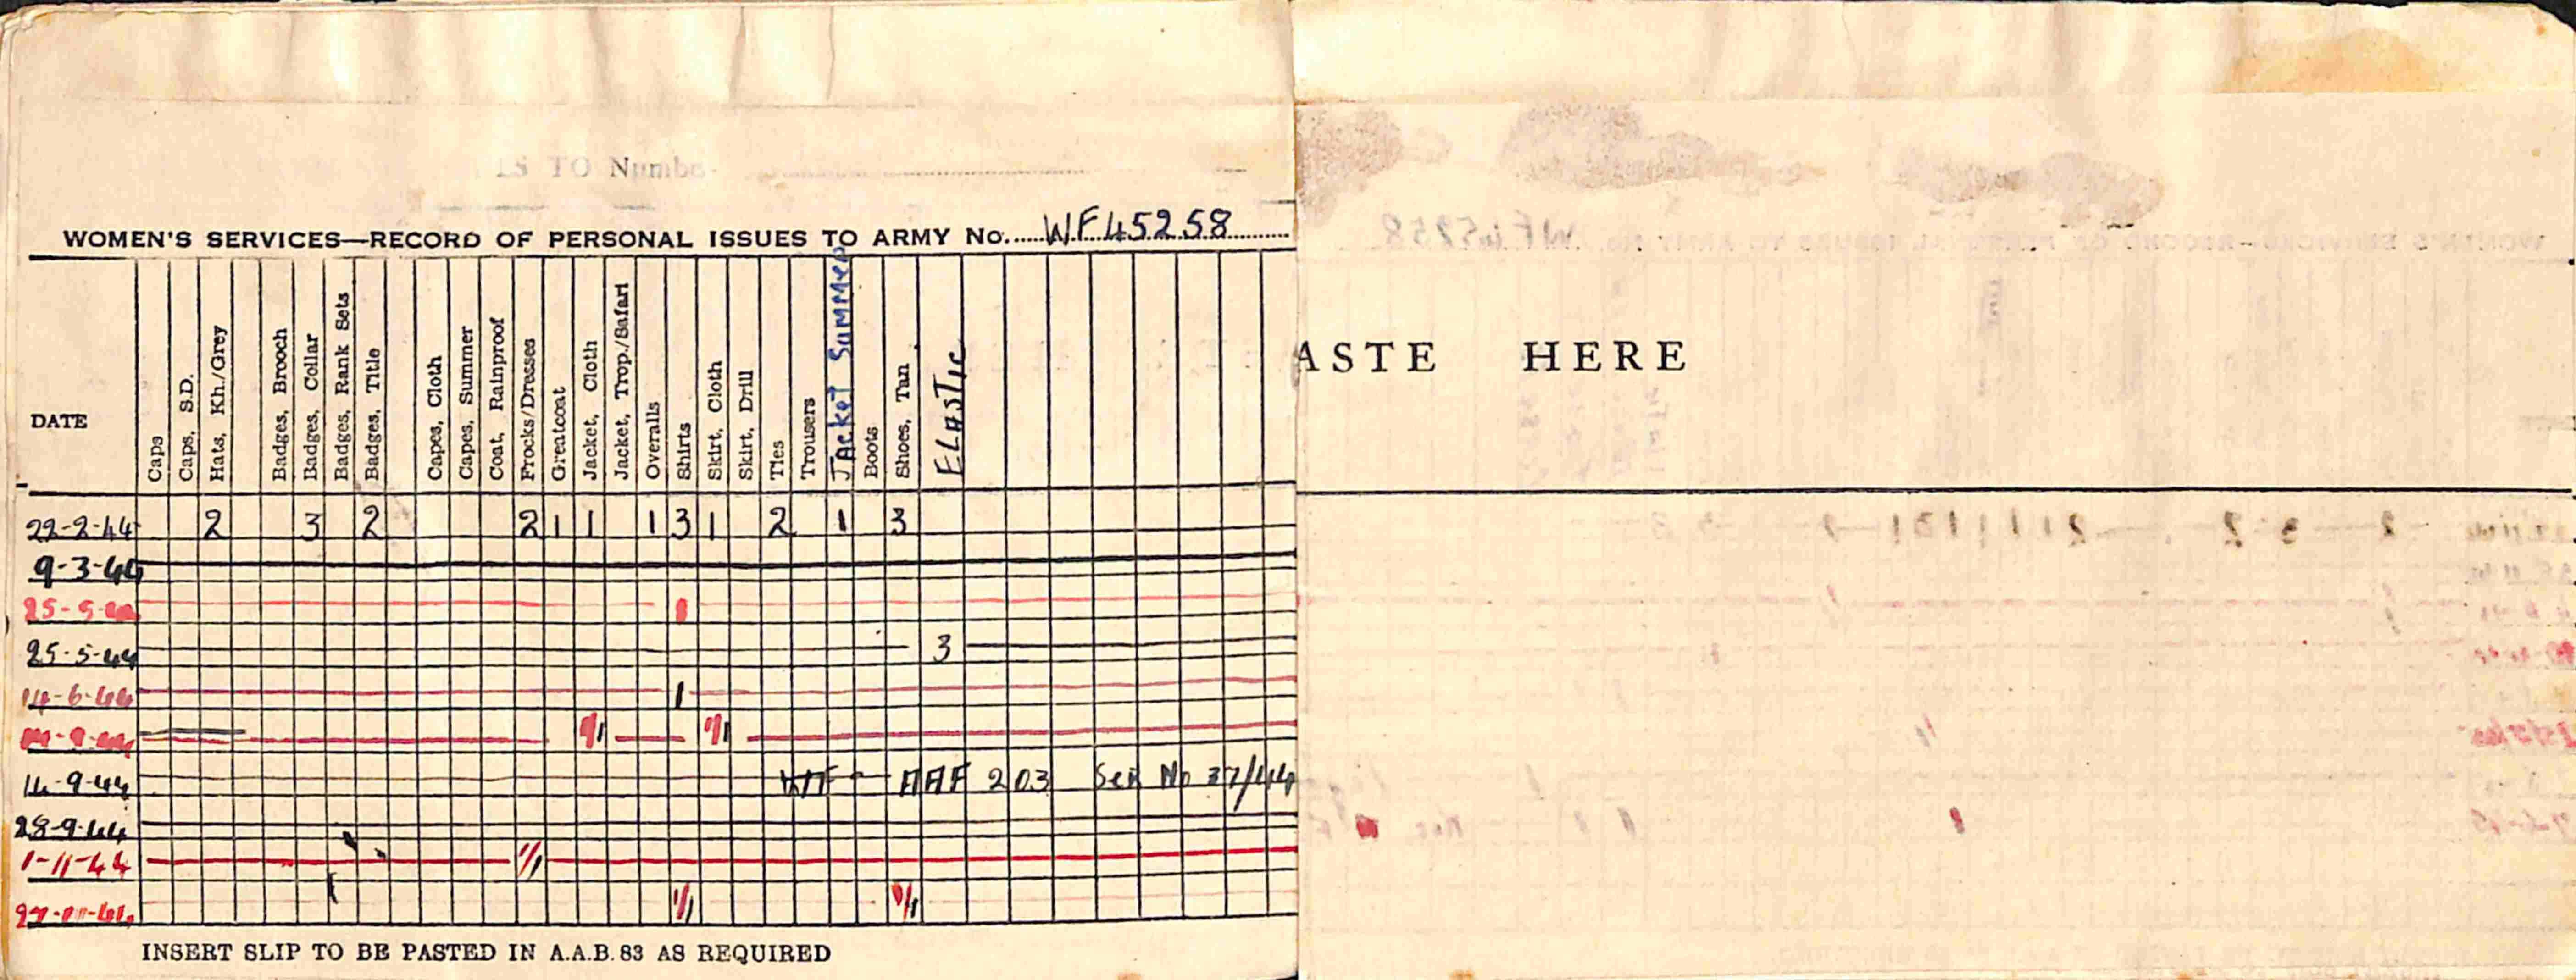 LS TO Numbe
WOMEN'S SERVICES—RECORD OF PERSONAL ISSUES TO ARMY No. WF45258
ASTE HERE
DATE
Caps
Caps, S.D.
Hats, Kh./Grey
Badges, Brooch
Badges, Collar
Badges, Rank Sets
Badges, Title
Capes, Cloth
Capes, Summer
Coat, Rainproof
Frocks/Dresses
Greatcoat
Jacket, Cloth
Jacket, Trop./Safari
Overalls
Shirts
Skirt, Cloth
Skirt, Drill
Ties
Trousers
JACKET SUMMER
Boots
Shoes, Tan
ELASTIC
22-2-44 2 3 2 2 1 1 1 3 1 2 1 3
9-3-44
25-5-44 3
14-6-44 1
1/1 1/1
14-9-44 AAF 203 Ser No 37/44
28-9-44
1-11-44 1/1
1/1 1/1
INSERT SLIP TO BE PASTED IN A.A.B. 83 AS REQUIRED